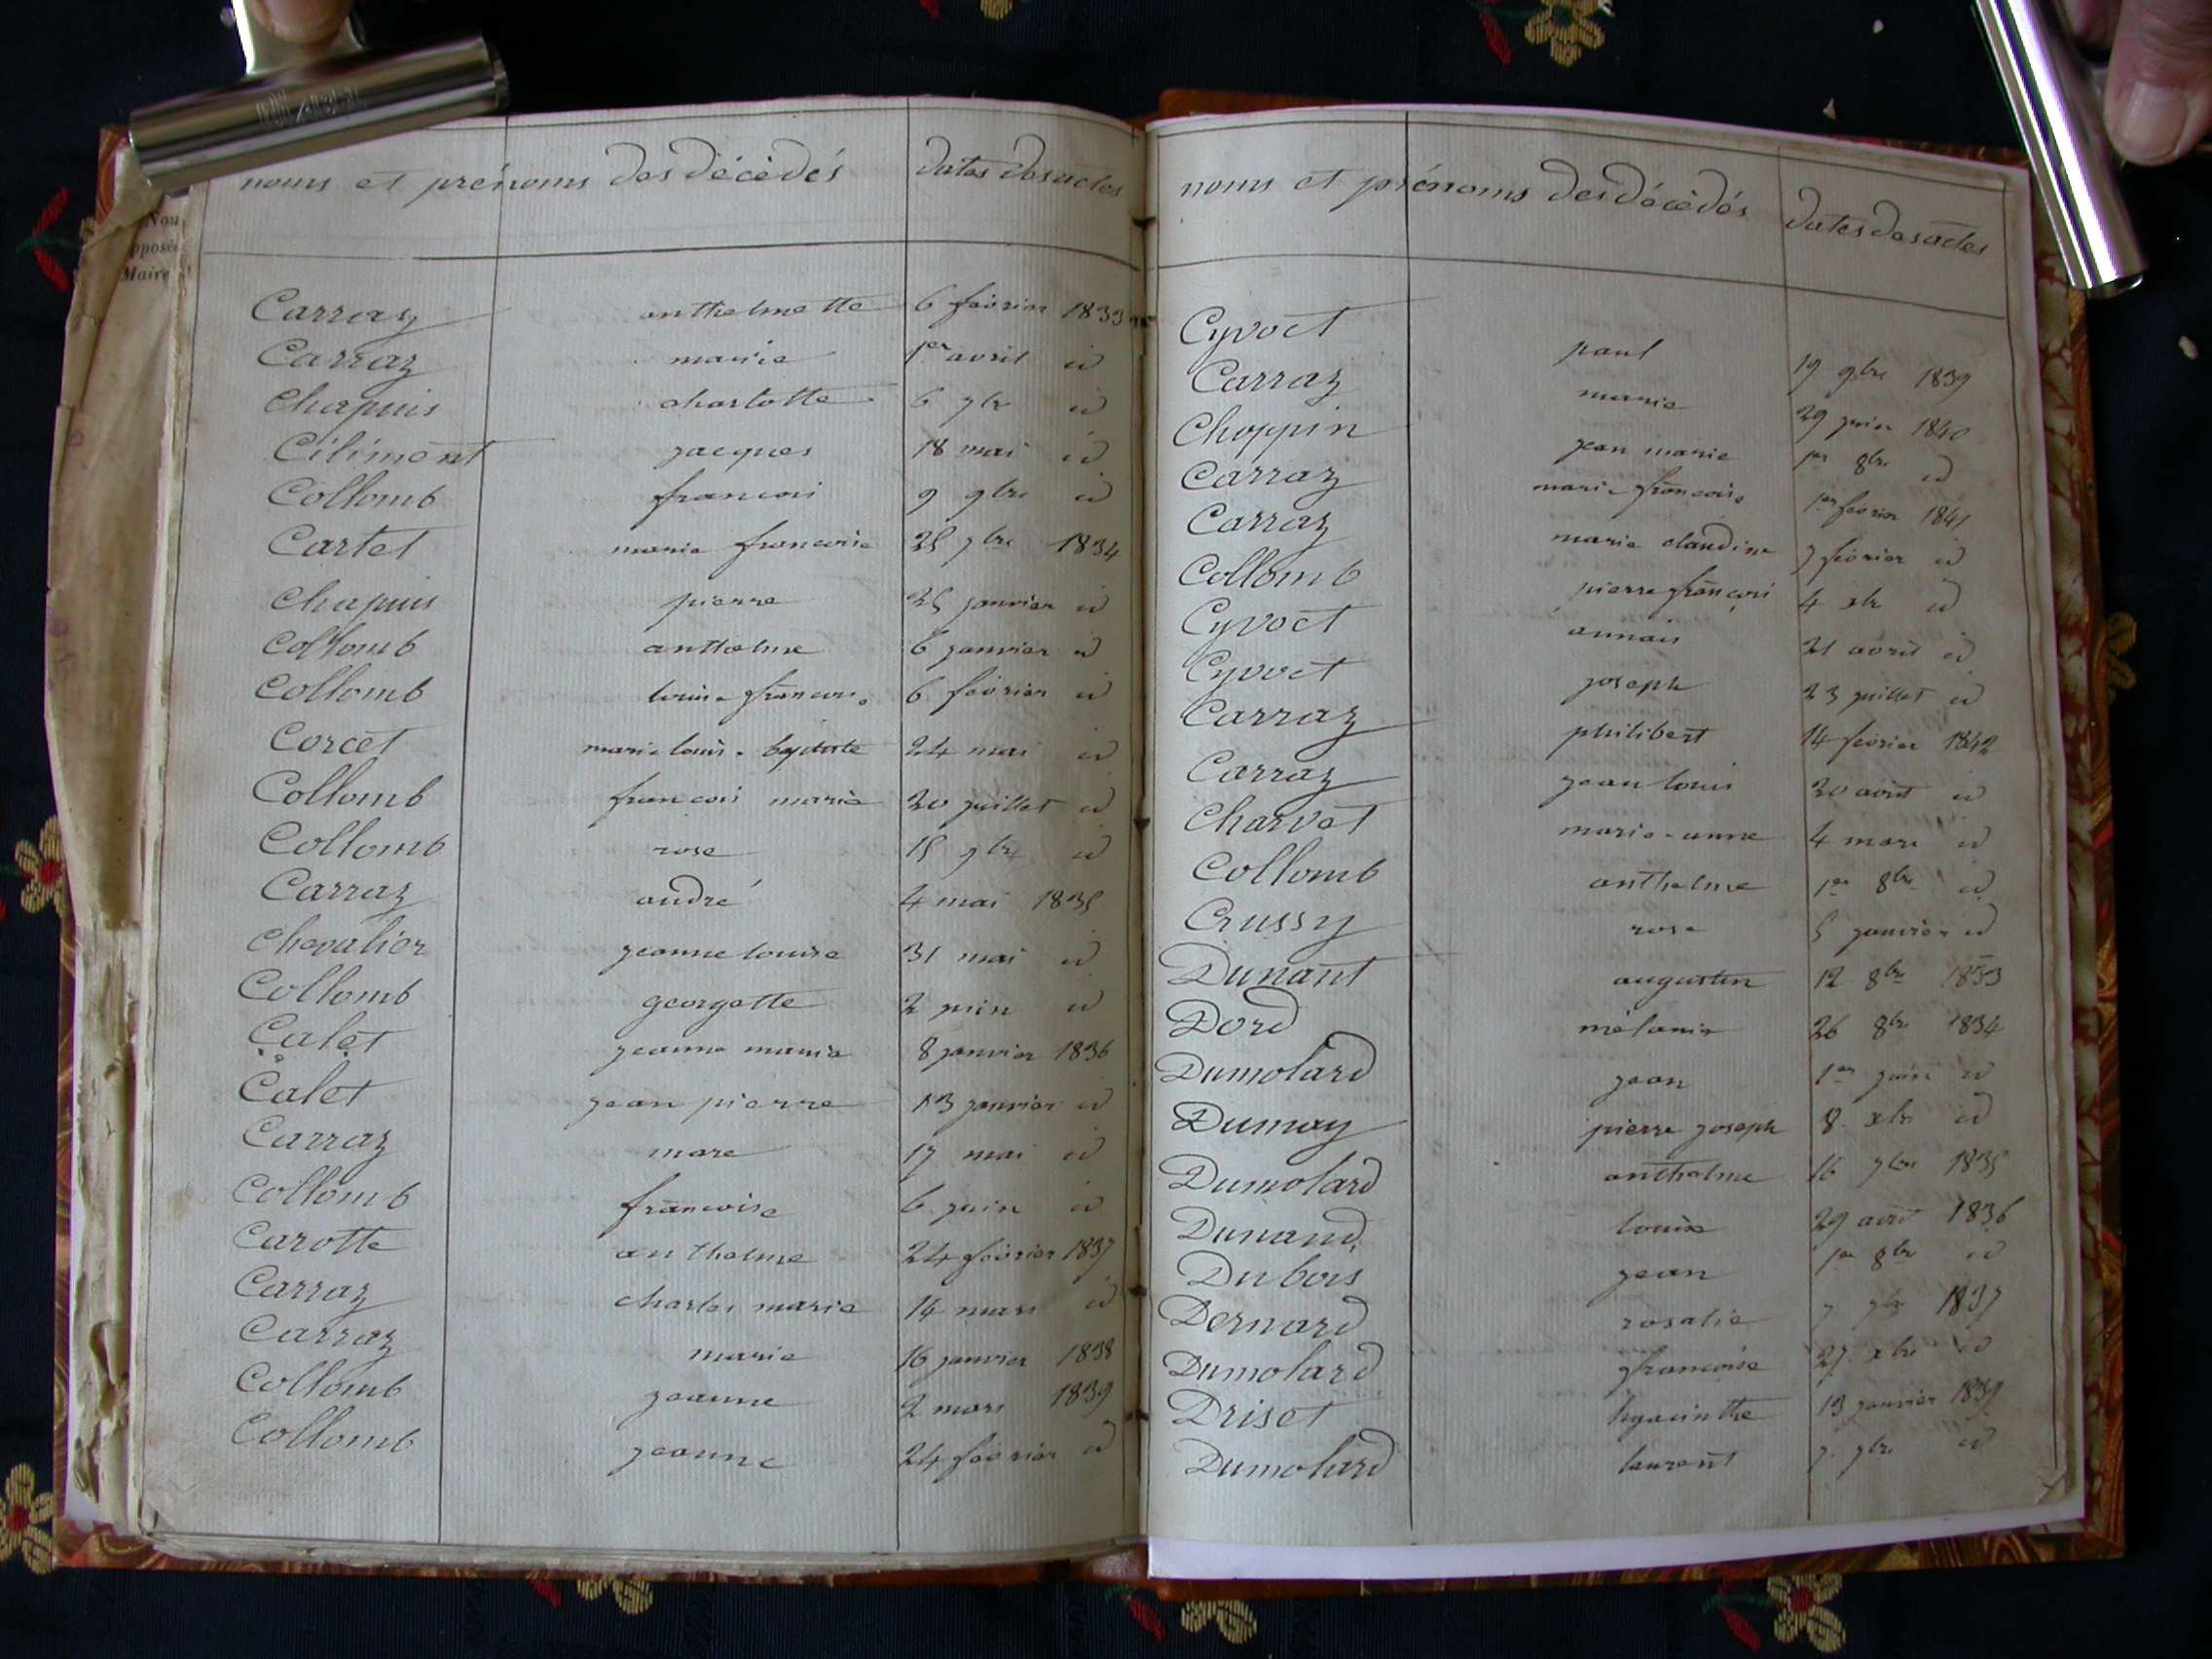 noms et prénoms des décédés dates des actes
Nou
pposée
Maire
Carraz anthelmette 6 février 1833
Carraz marie 1er avril id
Chapuis charlotte 6 7bre id
Cilimont jacques 18 mai id
Collomb francois 9 9bre id
Cartet marie francoise 25 7bre 1834
Chapuis pierre 25 janvier id
Collomb anthelme 6 janvier id
Collomb louise francois 6 février id
Corcet marie louis baptiste 24 mai id
Collomb francois marie 20 juillet id
Collomb rose 15 9bre id
Carraz andré 4 mai 1835
Chevalier jeanne louise 31 mai id
Collomb georgette 2 juin id
Calet jeanne marie 8 janvier 1836
Calet jean pierre 13 janvier id
Carraz marc 17 mai id
Collomb francoise 6 juin id
Carotte anthelme 24 février 1837
Carraz charles marie 14 mars id
Carraz marie 16 janvier 1838
Collomb jeanne 2 mars 1839
Collomb jeanne 24 février id
noms et prénoms des décédés dates des actes
Cyvoct paul 19 9bre 1839
Carraz marie 29 juin 1840
Choppin jean marie 1er 8bre id
Carraz marie francoise 1er février 1841
Carraz marie claudine 7 février id
Collomb pierre francois 4 xbre id
Cyvoct annais 21 avril id
Cyvoct joseph 23 juillet id
Carraz philibert 14 février 1842
Carraz jean louis 20 août id
Charvet marie-anne 4 mars id
Collomb anthelme 1er 8bre id
Crussy rose 5 janvier id
Dunant augustin 12 8bre 1833
Dord mélanie 26 8bre 1834
Dumolard jean 1er juin id
Dumay pierre joseph 8 xbre id
Dumolard anthelme 16 7bre 1835
Dunand louise 29 avril 1836
Dubois jean 1er 8bre id
Dernard rosalie 1837
Dumolard francoise 27 xbre id
Driset hyacinthe 13 janvier 1839
Dumolard laurent 7 9bre id